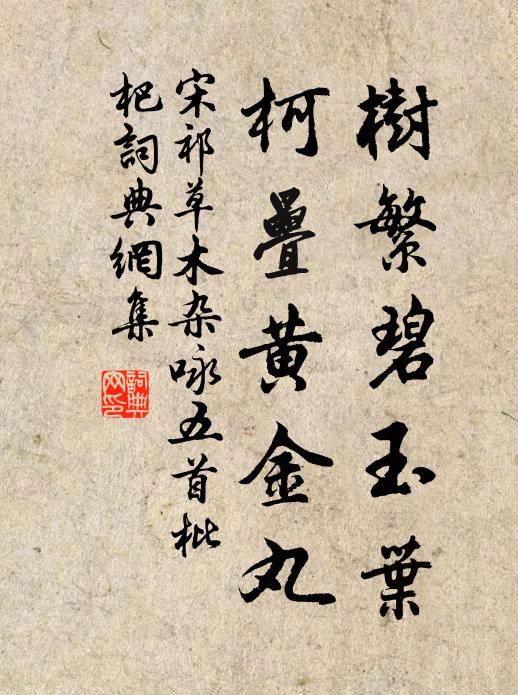 樹繁碧玉葉
柯疊黄金丸
宋祁草木杂咏五首枇
杷詞典網集
詞典网印